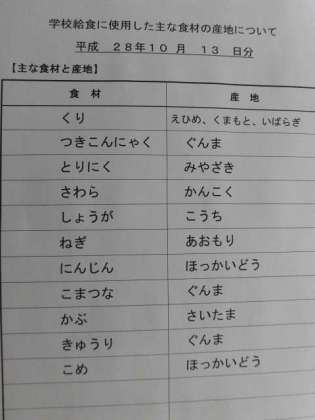 学校給食に使用した主な食材の産地について
平成 28年10 月 13 日分
【主な食材と産地】
食 材 産 地
くり えひめ、くまもと、いばらぎ
つきこんにゃく ぐんま
とりにく みやざき
さわら かんこく
しょうが こうち
ねぎ あおもり
にんじん ほっかいどう
こまつな ぐんま
かぶ さいたま
きゅうり ぐんま
こめ ほっかいどう